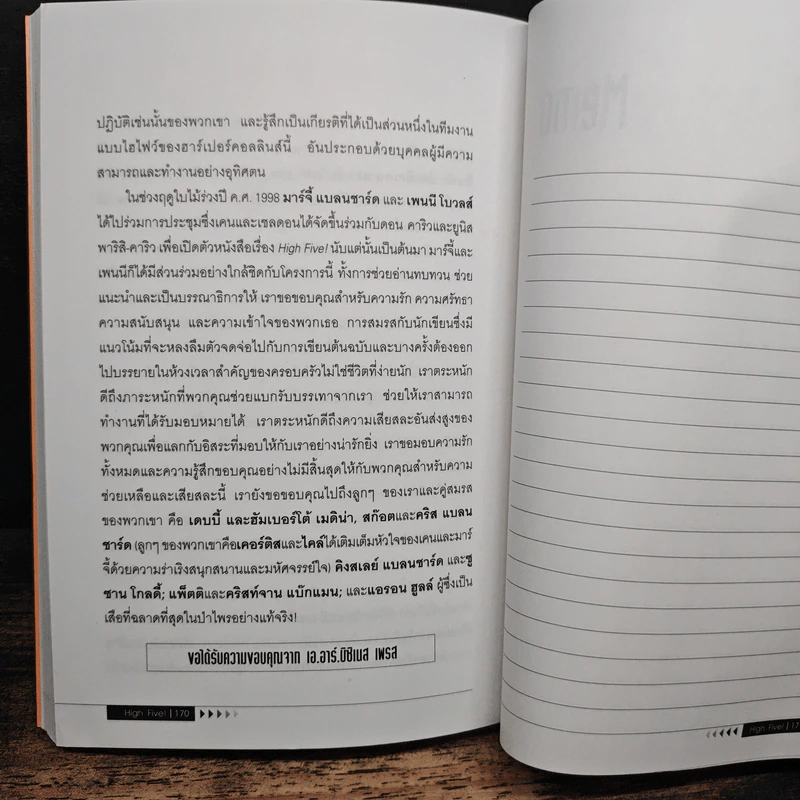 ปฏิบัติเช่นนั้นของพวกเขา และรู้สึกเป็นเกียรติที่ได้เป็นส่วนหนึ่งในทีมงาน
แบบไฮไฟว์ของฮาร์เปอร์คอลลินส์นี้ อันประกอบด้วยบุคคลผู้มีความ
สามารถและทำงานอย่างอุทิศตน
ในช่วงฤดูใบไม้ร่วงปี ค.ศ. 1998 มาร์จี้ แบลนชาร์ด และ เพนนี โบวลส์
ได้ไปร่วมการประชุมซึ่งเคนและเชลดอนได้จัดขึ้นร่วมกับดอน คาริวและยูนิส
พาริสิ-คาริว เพื่อเปิดตัวหนังสือเรื่อง High Five! นับแต่นั้นเป็นต้นมา มาร์จี้และ
เพนนีก็ได้มีส่วนร่วมอย่างใกล้ชิดกับโครงการนี้ ทั้งการช่วยอ่านทบทวน ช่วย
แนะนำและเป็นบรรณาธิการให้ เราขอขอบคุณสำหรับความรัก ความศรัทธา
ความสนับสนุน และความเข้าใจของพวกเธอ การสมรสกับนักเขียนซึ่งมี
แนวโน้มที่จะหลงลืมตัวจดจ่อไปกับการเขียนต้นฉบับและบางครั้งต้องออก
ไปบรรยายในห้วงเวลาสำคัญของครอบครัวไม่ใช่ชีวิตที่ง่ายนัก เราตระหนัก
ดีถึงภาระหนักที่พวกคุณช่วยแบกรับบรรเทาจากเรา ช่วยให้เราสามารถ
ทำงานที่ได้รับมอบหมายได้ เราตระหนักดีถึงความเสียสละอันส่งสูงของ
พวกคุณเพื่อแลกกับอิสระที่มอบให้กับเราอย่างน่ารักยิ่ง เราขอมอบความรัก
ทั้งหมดและความรู้สึกขอบคุณอย่างไม่มีสิ้นสุดให้กับพวกคุณสำหรับความ
ช่วยเหลือและเสียสละนี้ เรายังขอขอบคุณไปถึงลูกๆ ของเราและคู่สมรส
ของพวกเขา คือ เดบบี้ และฮัมเบอร์โต้ เมดิน่า, สก๊อตและคริส แบลน
ชาร์ด (ลูกๆ ของพวกเขาคือเคอร์ติสและไคล์ได้เติมเต็มหัวใจของเคนและมาร์
จี้ด้วยความร่าเริงสนุกสนานและมหัศจรรย์ใจ) คิงสเลย์ แบลนชาร์ด และซู
ซาน โกลดี้; แพ็ตติและคริสท์จาน แบ๊กแมน; และแอรอน ฮูลล์ ผู้ซึ่งเป็น
เสือที่ฉลาดที่สุดในป่าไพรอย่างแท้จริง!
ขอได้รับความขอบคุณจาก เอ.อาร์.บิซิเนส เพรส
High Five! | 170
High Five! | 17